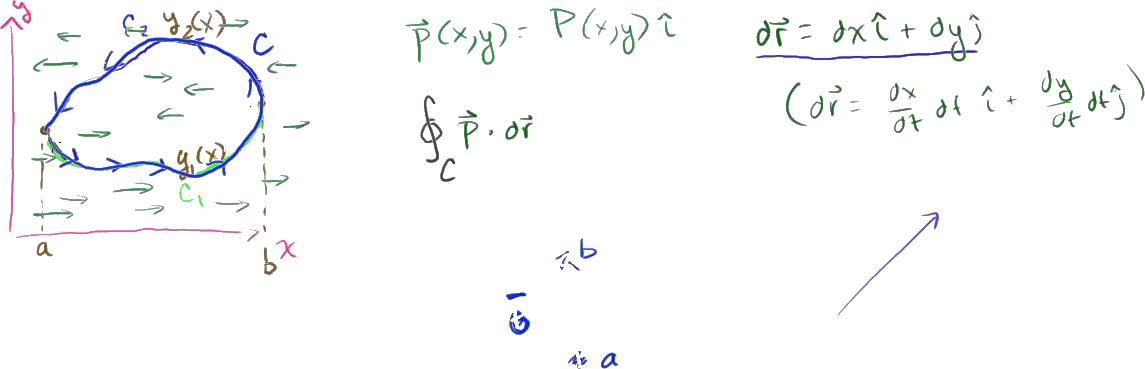 y
C₂ y₂(x)
C
y₁(x)
C₁
a
b
x
p⃗(x,y) = P(x,y) î
∮_C p⃗ · dr⃗
dr⃗ = dx î + dy ĵ
(dr⃗ = dx/dt dt î + dy/dt dt ĵ)
b
a